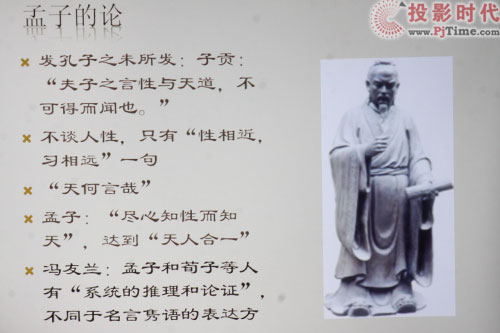 孟子的论
投影时代
www.PjTime.com
发孔子之未所发：子贡：
“夫子之言性与天道，不
可得而闻也。”
不谈人性，只有“性相近，
习相远”一句
“天何言哉”
孟子：“尽心知性而知
天”，达到“天人合一”
冯友兰：孟子和荀子等人
有“系统的推理和论证”，
不同于名言隽语的表达方